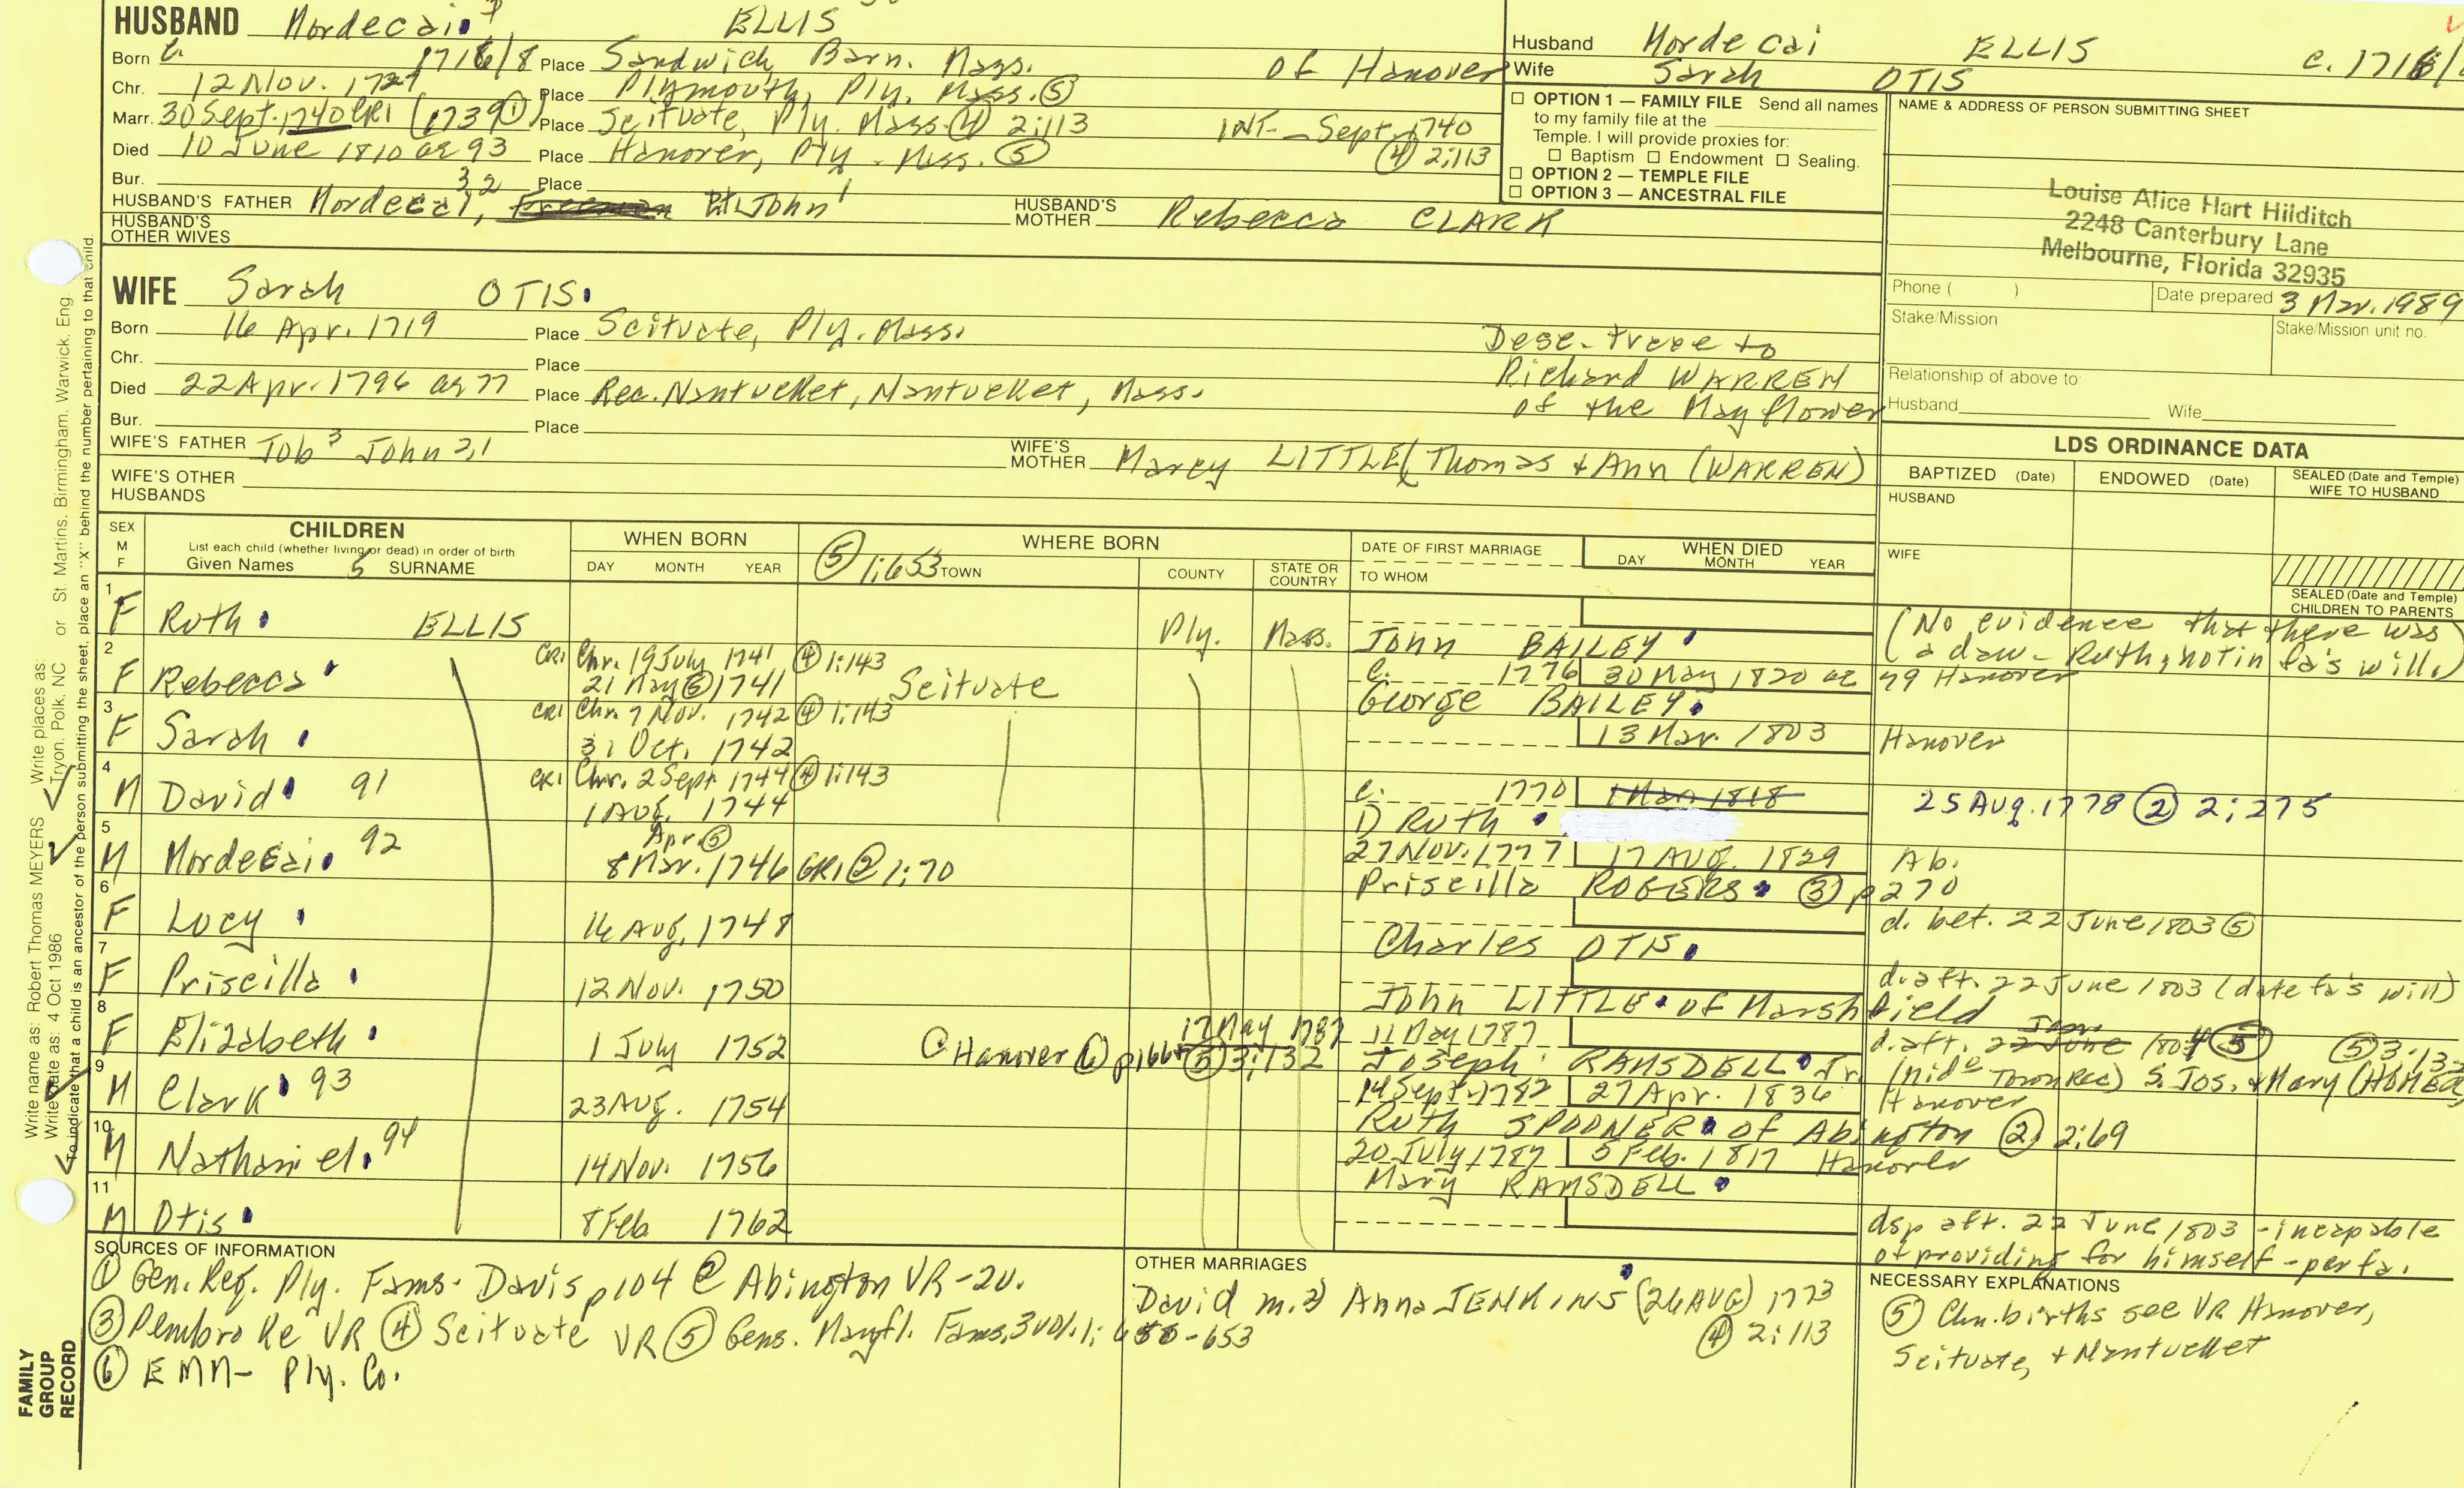 HUSBAND Mordecai ELLIS
Born c. 1716/8 Place Sandwich, Barn. Mass. of Hanover
Chr. 12 Nov. 1727 Place Plymouth, Ply. Mass. ⑤
Marr. 30 Sept. 1740 CR1 (1739 ①) Place Scituate, Ply. Mass. ④ 2:113 INT - Sept. 1740
④ 2:113
Died 10 June 1810 ae 93 Place Hanover, Ply. Mass. ⑤
Bur. Place
HUSBAND'S FATHER Mordecai, 3,2 John 1
HUSBAND'S MOTHER Rebecca CLARK
HUSBAND'S OTHER WIVES
Husband Mordecai ELLIS c. 1716/
Wife Sarah OTIS
☐ OPTION 1 — FAMILY FILE Send all names
to my family file at the
Temple. I will provide proxies for:
☐ Baptism ☐ Endowment ☐ Sealing.
☐ OPTION 2 — TEMPLE FILE
☐ OPTION 3 — ANCESTRAL FILE
NAME & ADDRESS OF PERSON SUBMITTING SHEET
Louise Alice Hart Hilditch
2248 Canterbury Lane
Melbourne, Florida 32935
Phone ( )
Date prepared 3 Mar. 1989
Stake/Mission
Stake/Mission unit no.
Relationship of above to
Husband Wife
WIFE Sarah OTIS
Born 16 Apr. 1719 Place Scituate, Ply. Mass.
Chr. Place
Died 22 Apr. 1796 ae 77 Place Rec. Nantucket, Nantucket, Mass.
Bur. Place
Desc. trace to
Richard WARREN
of the Mayflower
WIFE'S FATHER Job 3 John 2,1
WIFE'S MOTHER Marcy LITTLE (Thomas & Ann (WARREN)
WIFE'S OTHER HUSBANDS
LDS ORDINANCE DATA
BAPTIZED (Date) ENDOWED (Date) SEALED (Date and Temple) WIFE TO HUSBAND
HUSBAND
WIFE
SEALED (Date and Temple) CHILDREN TO PARENTS
SEX M F
CHILDREN
List each child (whether living or dead) in order of birth
Given Names 5 SURNAME
WHEN BORN
DAY MONTH YEAR
WHERE BORN
⑤ 1:653 TOWN COUNTY STATE OR COUNTRY
DATE OF FIRST MARRIAGE
TO WHOM
WHEN DIED
DAY MONTH YEAR
1 F Ruth ELLIS Ply. Mass.
John BAILEY
(No evidence that there was
a dau. Ruth, not in fa's will)
2 F Rebecca CR1 Chr. 19 July 1741 ④ 1:143
21 May ⑤ 1741 Scituate
c. 1776 30 May 1820 ae 79 Hanover
George BAILEY
3 F Sarah CR1 Chr. 7 Nov. 1742 ④ 1:143
31 Oct. 1742
13 Mar. 1803 Hanover
4 M David 91 CR1 Chr. 2 Sept 1744 ④ 1:143
1 Aug. 1744
c. 1770 1 Mar 1818 25 Aug. 1778 ② 2:275
1) Ruth
5 M Mordecai 92 Apr ⑤
8 Mar. 1746 GR1 ② 1:70
27 Nov. 1777 17 Aug. 1829 Ab.
Priscilla ROGERS ③ p270
6 F Lucy 16 Aug. 1748
d. bet. 22 June 1803 ⑤
Charles OTIS
7 F Priscilla 12 Nov. 1750
d. aft. 22 June 1803 (date fa's will)
John LITTLE of Marshfield
8 F Elizabeth 1 July 1752
17 May 1787 11 May 1787
Hanover ⑥ p166 ⑤ 3:132
d. aft. 22 June 1804 ⑤ ⑤ 3:132
Joseph RAMSDELL Jr. Town Rec) S. Jos. & Mary
9 M Clark 93 23 Aug. 1754
14 Sept. 1782 27 Apr. 1836 Hanover
Ruth SPOONER of Abington ② 2:69
10 M Nathaniel 94 14 Nov. 1756
20 July 1787 5 Feb. 1817 Hanover
Mary RAMSDELL
11 M Otis 8 Feb 1762
dsp aft. 22 June 1803 - incapable
of providing for himself - per fa.
SOURCES OF INFORMATION
① Gen. Reg. Ply. Fams. Davis p104 ② Abington VR-2v.
③ Pembroke VR ④ Scituate VR ⑤ Gens. Mayfl. Fams. 3 vol. 1: 650-653
⑥ EMM- Ply. Co.
OTHER MARRIAGES
David m. 2) Anna JENKINS (26 AUG) 1773
④ 2:113
NECESSARY EXPLANATIONS
⑤ Chn. births see VR Hanover,
Scituate, & Nantucket
FAMILY GROUP RECORD
Write name as: Robert Thomas MEYERS Write places as: Tryon, Polk, NC or St. Martins, Birmingham, Warwick, Eng
Write date as: 4 Oct 1986
To indicate that a child is an ancestor of the person submitting the sheet, place an "X" behind the number pertaining to that child.